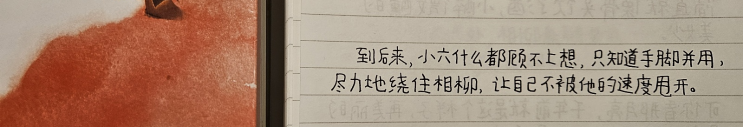 到后来，小六什么都顾不上想，只知道手脚并用，
尽力地绕住相柳，让自己不被他的速度甩开。